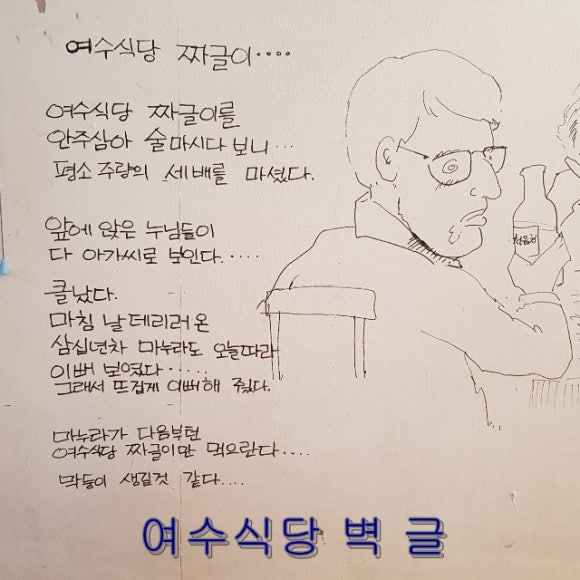 여수식당 짜글이....
여수식당 짜글이를
안주삼아 술마시다 보니...
평소 주량의 세배를 마셨다.
앞에 앉은 누님들이
다 아가씨로 보인다.....
클났다.
마침 날 데리러 온
삼십년차 마누라도 오늘따라
이뻐 보였다.....
그래서 뜨겁게 이뻐해 줬다.
마누라가 다음부턴
여수식당 짜글이만 먹으란다....
막둥이 생길것 같다....
여수식당 벽 글